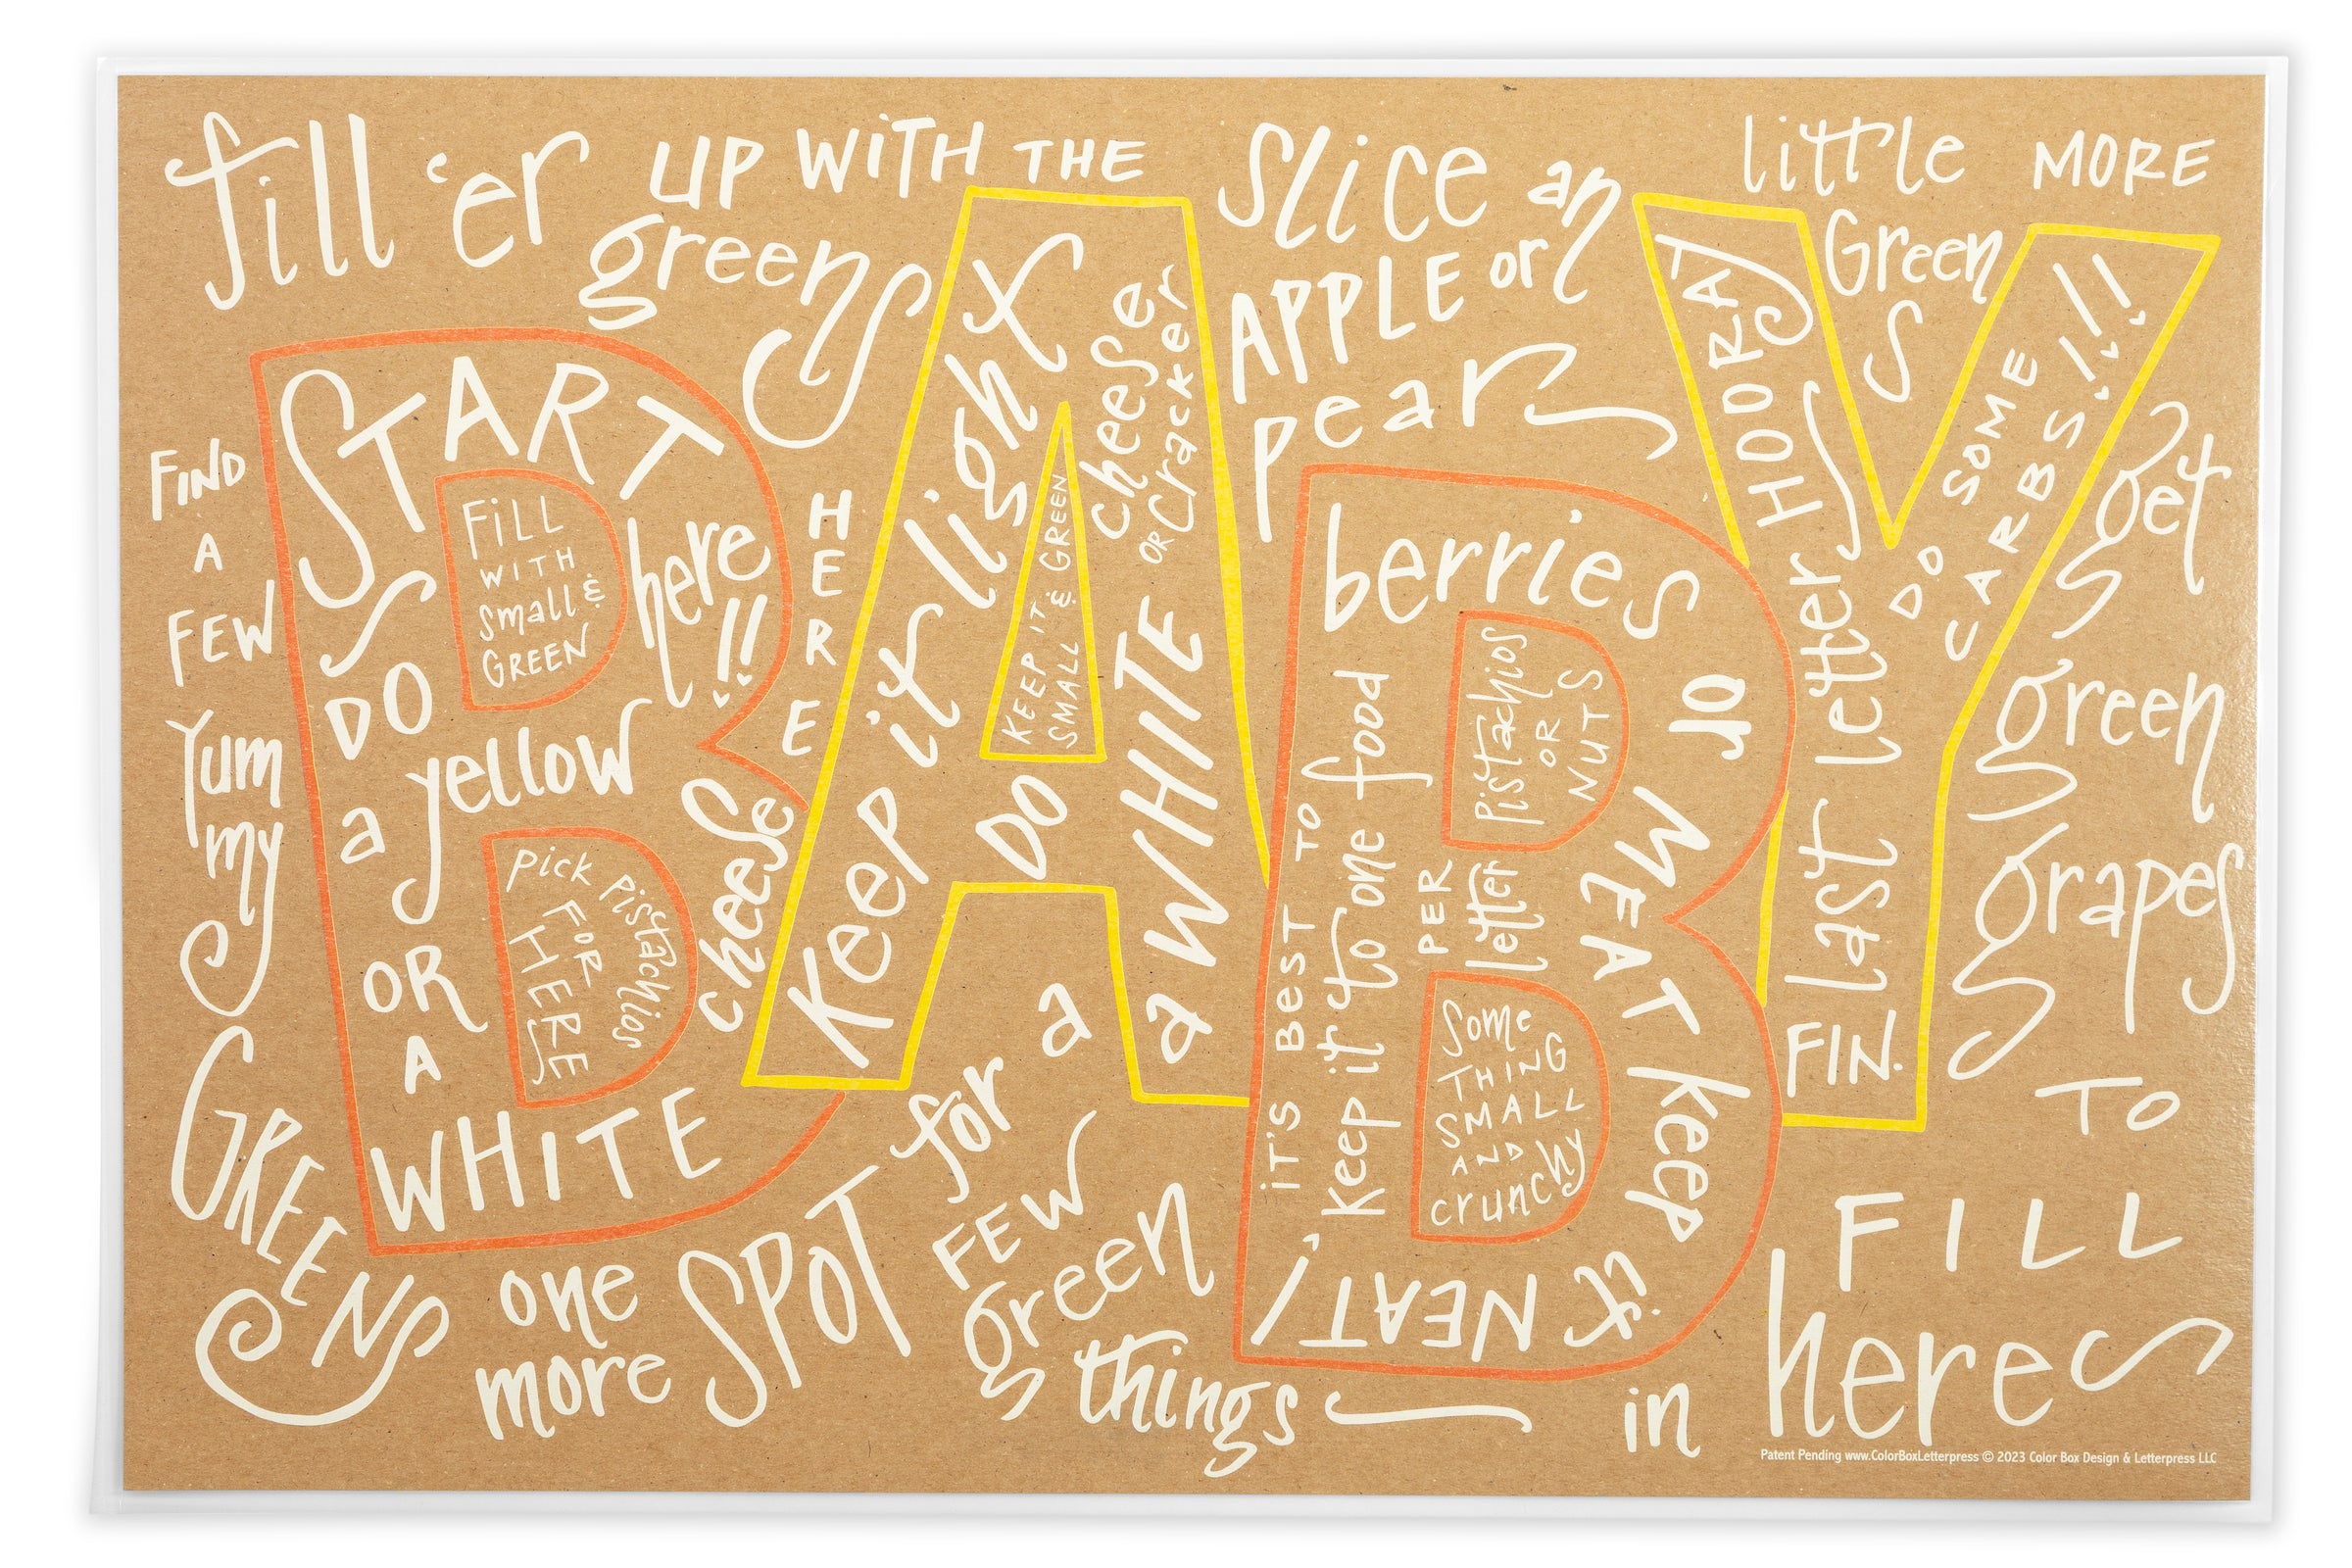 fill 'er UP WiTH THE
greens
HERE
SLiCE an
APPLE or
pear
little MORE
Green
S
FIND
A
FEW
Yum
my
GREENS
START
here!!
DO
a yellow
OR
A
WHITE
cheese
FiLL
WITH
small &
GREEN
Pick Pistachios
FOR
HERE
Keep it light
cheese
OR cracker
KEEP IT & GREEN
SMALL
DO
a WHITE
one
more SPOT for a
FEW
green
things
berries or MEAT keep it NEAT!
iT'S BEST TO
keep it to one food
PER
letter
Pistachios
OR
NUTS
Some
THING
SMALL
AND
crunchy
HOORAY
last letter
DO SOME
CARBS!!!
FIN.
get
green
grapes
TO
FILL
in here
Patent Pending www.ColorBoxLetterpress © 2023 Color Box Design & Letterpress LLC